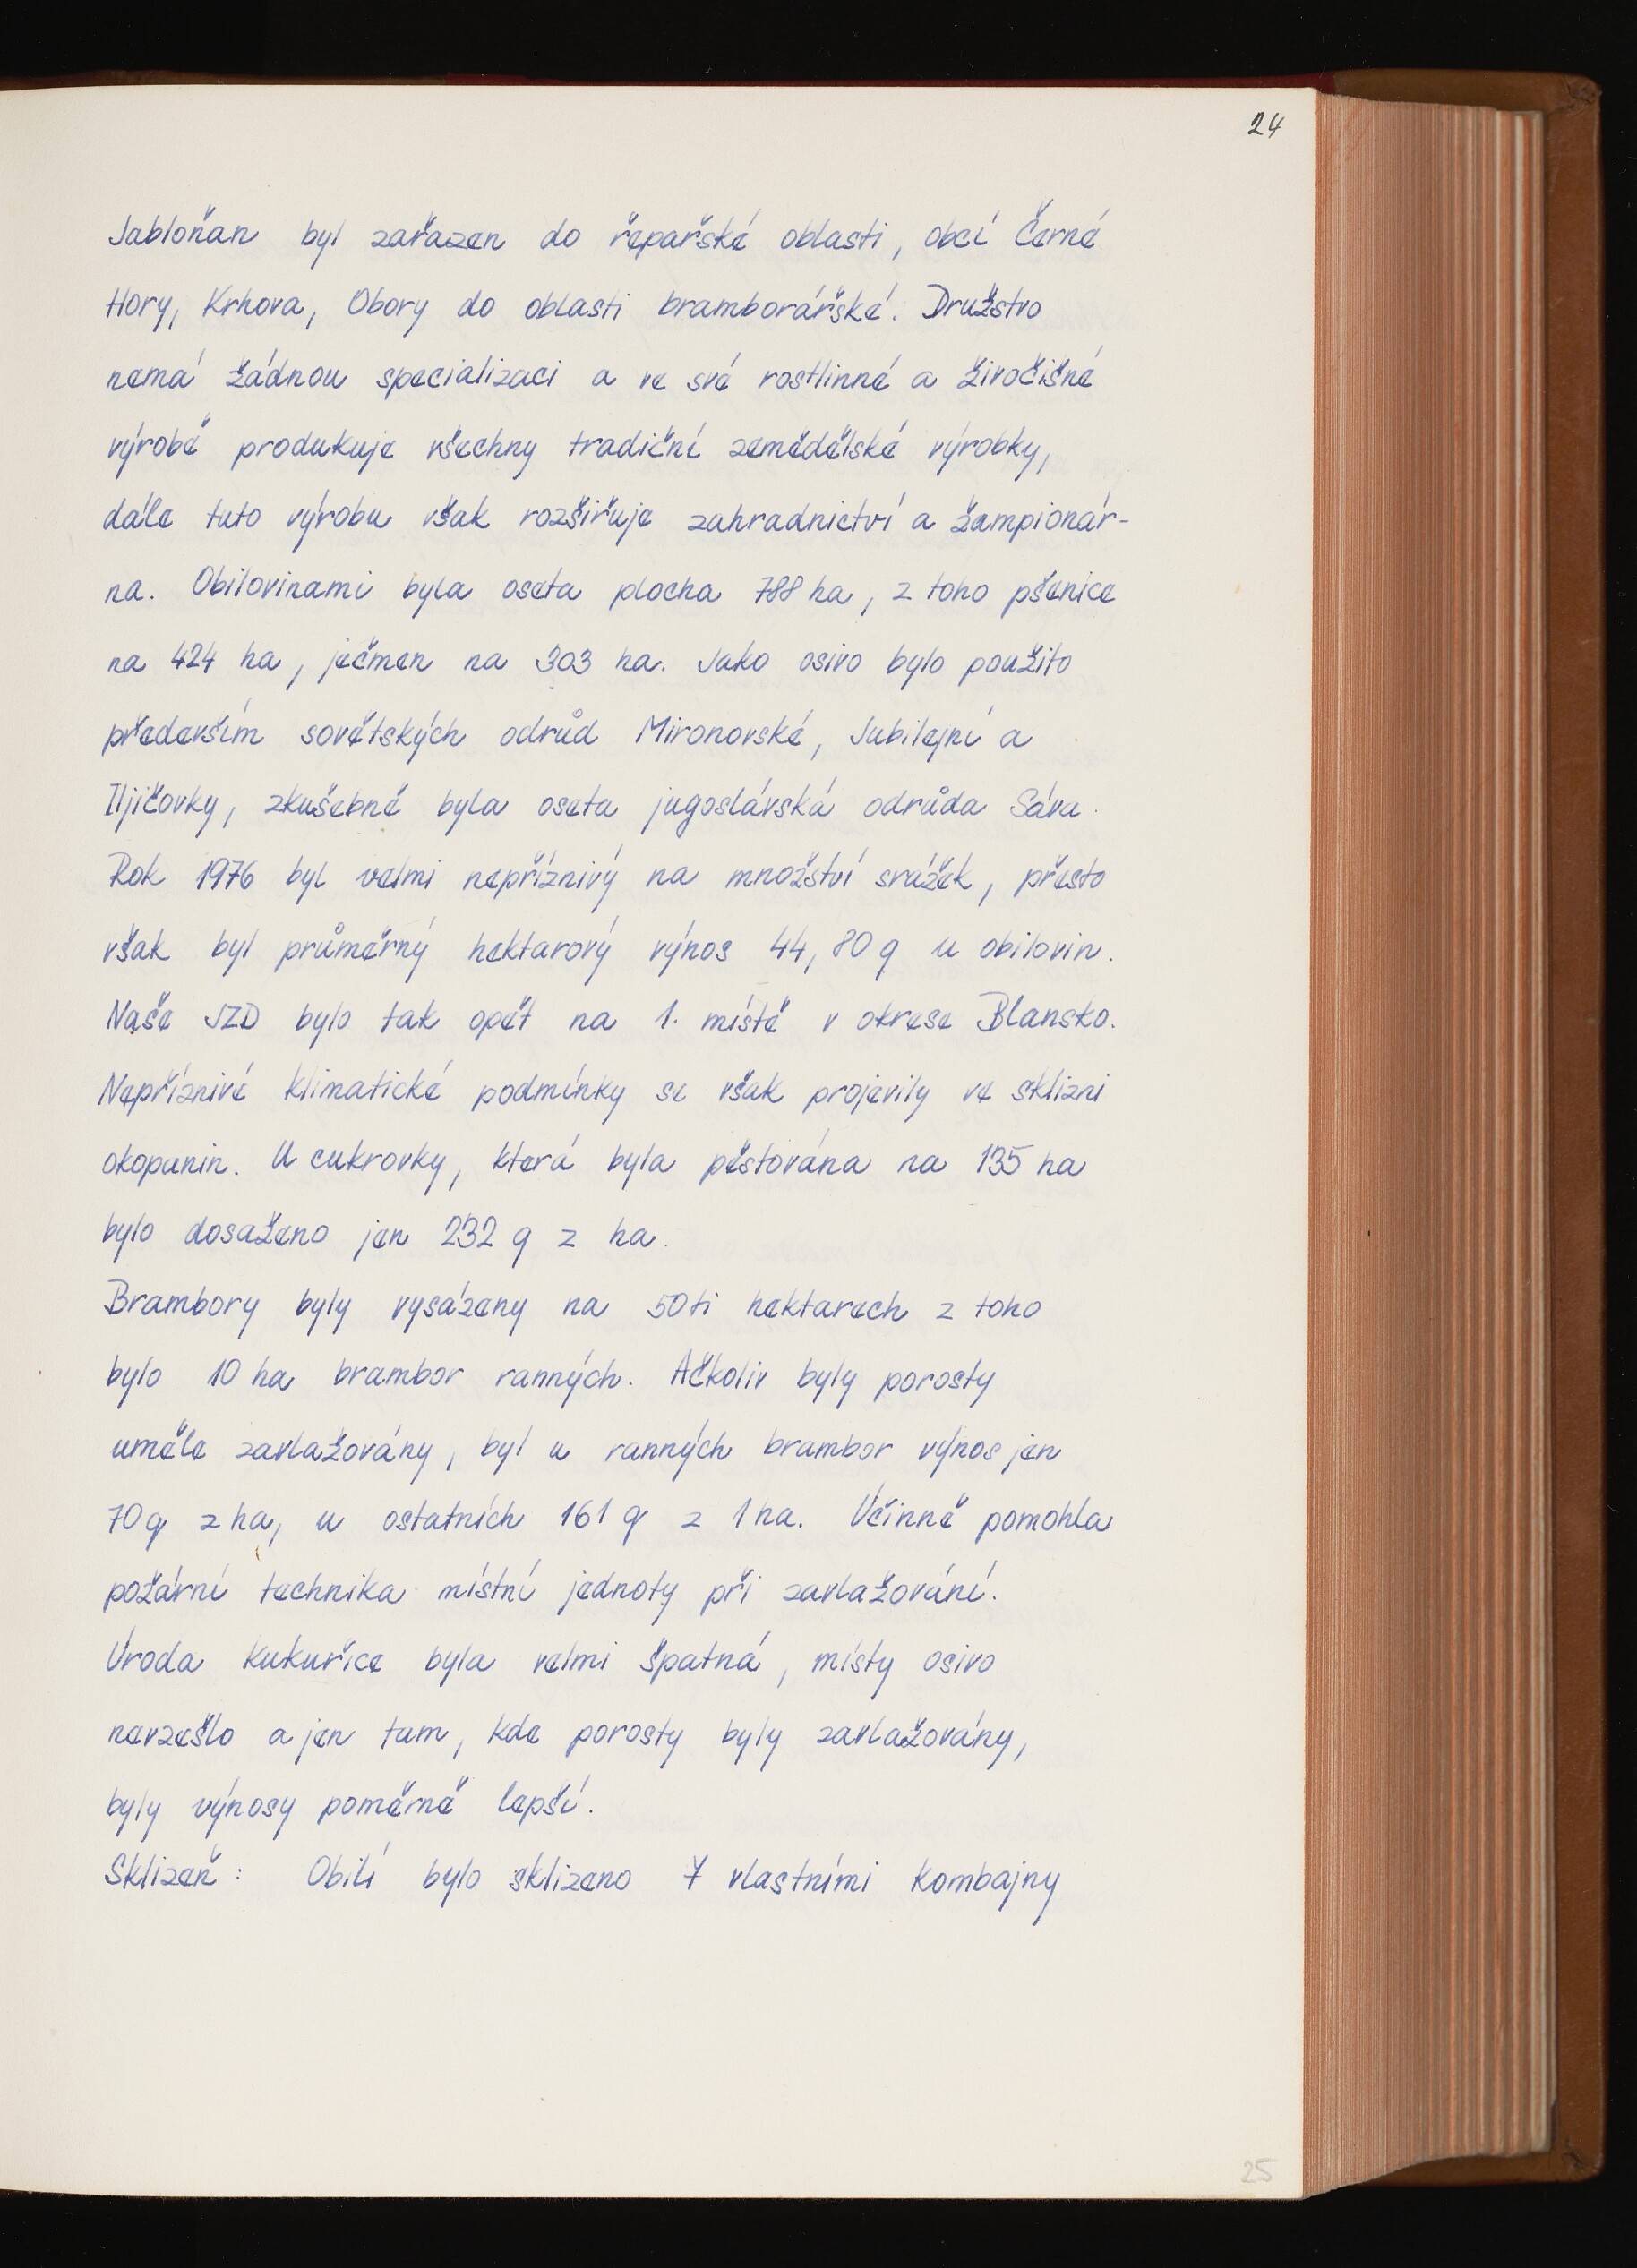 24
Jabloňan byl zařazen do řepařské oblasti, obcí Černé
Hory, Krhova, Obory do oblasti bramborářské. Družstvo
nemá žádnou specializaci a ve své rostlinné a živočišné
výrobě produkuje všechny tradiční zemědělské výrobky,
dále tuto výrobu však rozšiřuje zahradnictví a žampionár-
na. Obilovinami byla oseta plocha 788 ha, z toho pšenice
na 424 ha, ječmen na 303 ha. Jako osivo bylo použito
především sovětských odrůd Mironovské, Jubilejní a
Iljičovky, zkušebně byla oseta jugoslávská odrůda Sáva.
Rok 1976 byl velmi nepříznivý na množství srážek, přesto
však byl průměrný hektarový výnos 44,80 q u obilovin.
Naše JZD bylo tak opět na 1. místě v okrese Blansko.
Nepříznivé klimatické podmínky se však projevily ve sklizni
okopanin. U cukrovky, která byla pěstována na 135 ha
bylo dosaženo jen 232 q z ha.
Brambory byly vysázeny na 50ti hektarech z toho
bylo 10 ha brambor ranných. Ačkoliv byly porosty
uměle zavlažovány, byl u ranných brambor výnos jen
70 q z ha, u ostatních 161 q z 1 ha. Účinně pomohla
požární technika místní jednoty při zavlažování.
Úroda kukuřice byla velmi špatná, místy osivo
nevzešlo a jen tam, kde porosty byly zavlažovány,
byly výnosy poměrně lepší.
Sklizeň: Obilí bylo sklizeno 7 vlastními kombajny
25